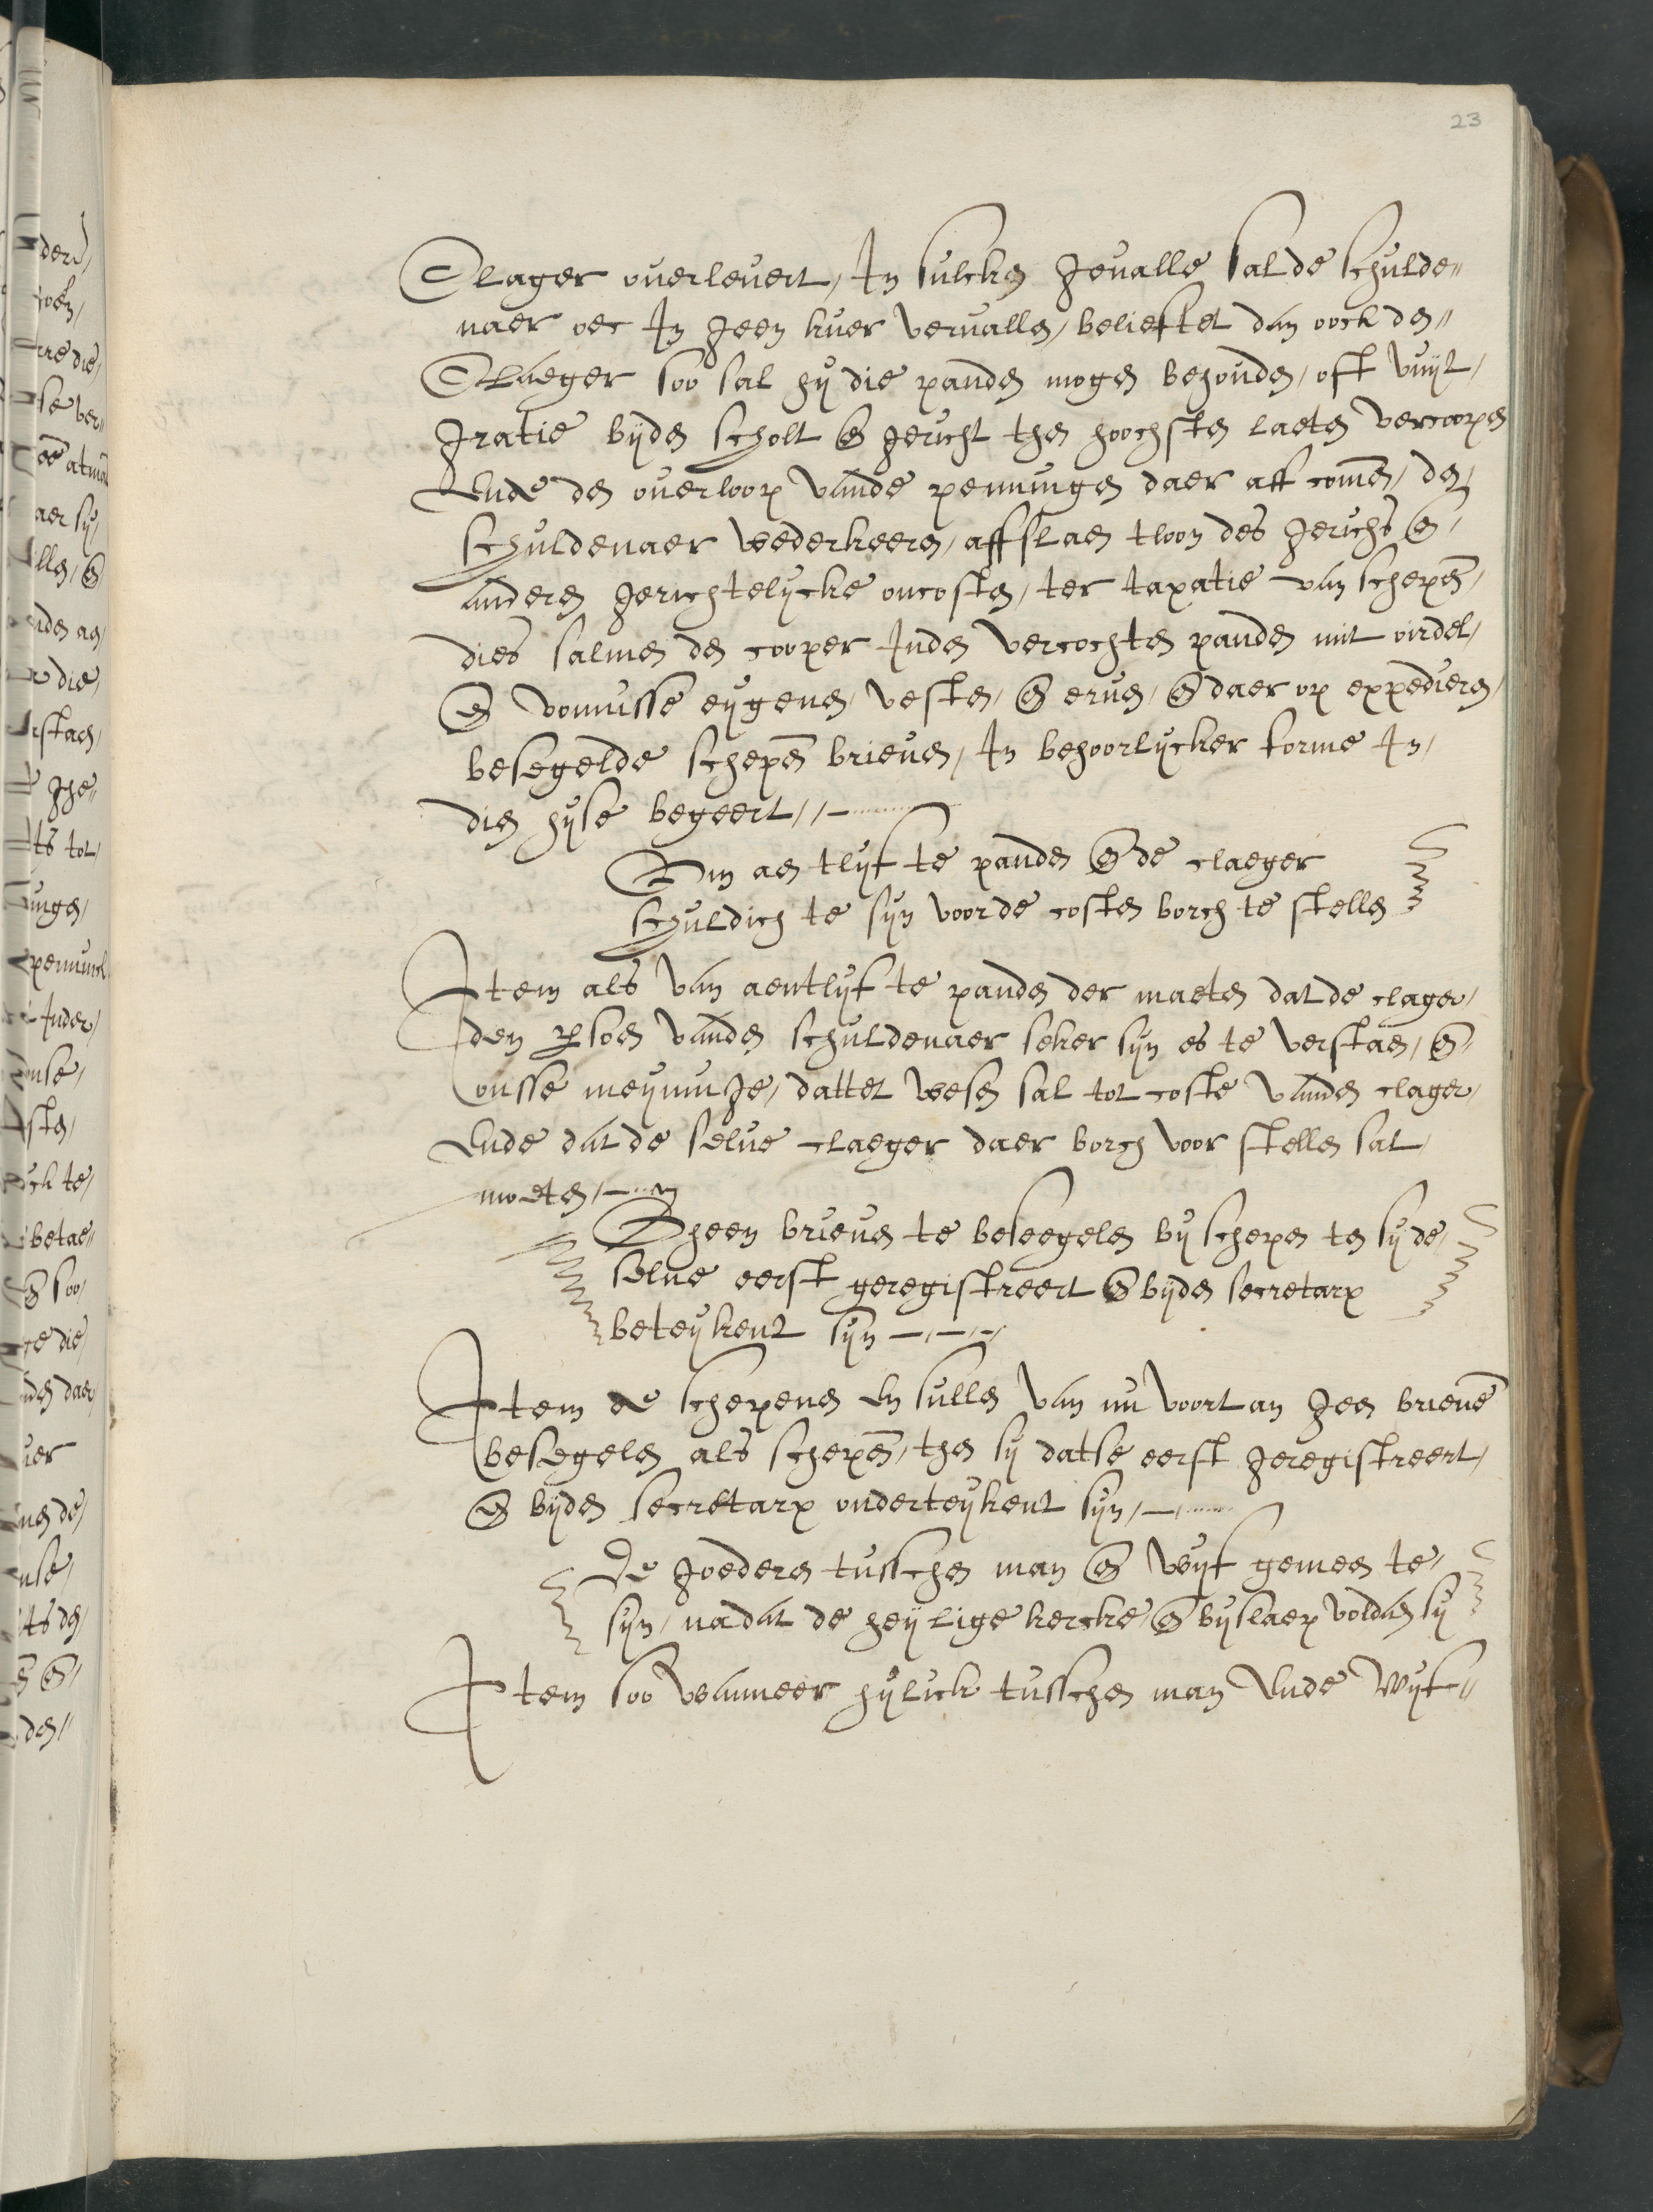 23
Clager ouerleuert, In sulcken geualle sal de schulde=
naer oec In geen kuer vervallen, belieftet dan oock den=
Claeger soo sal hij die panden mogen behouden, oft vuijt,
gratie bijden scholt en gericht then hoochsten laeten vercoopen
Ende den ouerloop vande penningen daer aff comen, den
schuldenaer wederkeeren, affslaen tloon des gerichs en
anderen gerichtelijcke oncosten, ter taxatie van schepen,
dies salmen den cooper Inden vercochten panden mit oirdel,
en vonnisse eijgenen, vesten, en eruen, en daer op expedieren,
besegelde schepen brieuen, In behoorlijcker forme In,
dien hijse begeert,,
Om aen tlijf te panden en de claeger
schuldich te sijn voor de costen borch te stellen
Item als van aentlijf te panden der maeten dat de clager,
den persoen vanden schuldenaer seker sijn es te verstaen, en
onsse meijninge, dattet wesen sal tot coste vanden clager,
Ende dat de selue claeger daer borch voor stellen sal
moeten,
Gheen brieuen te beseegelen bij schepen ten sij de,
selue eerst geregistreert en bijden secretarx
beteijkent sijn
Item de schepenen en sullen van nu voortan geen brieuen
besegelen als schepen, then sij datse eerst geregistreert,
en bijden secretarx onderteijkent sijn,
De goederen tusschen man en wijf gemeen te,
sijn, nadat de heijlige kercke, en bijslaep voldaen sij
Item soo wanneer hijlick tusschen man Ende Wijf=